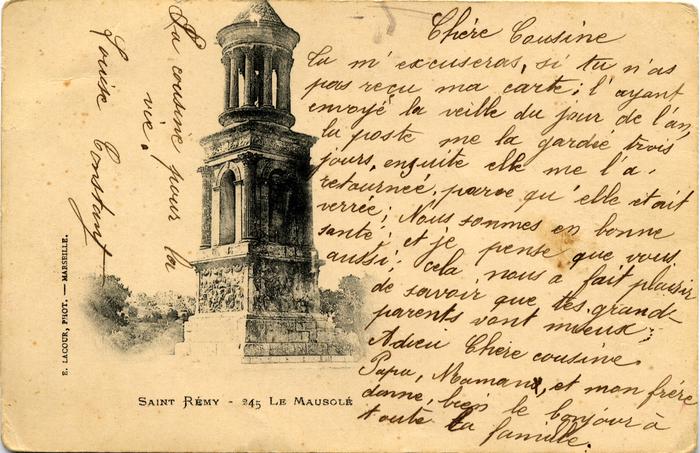 Chère Cousine
Tu m'excuseras, si tu n'as
pas reçu ma carte; l'ayant
envoyé la veille du jour de l'an,
la poste me la gardée trois
jours, ensuite elle me l'a
retournée, parce qu'elle était
verrée; Nous sommes en bonne
santé; et je pense que vous
aussi; cela nous a fait plaisir
de savoir que tes grand
parents vont mieux;
Adieu Chère cousine.
Papa, Maman, et mon frère
donne, bien le bonjour à
toute la famille.
Ta cousine pour la
vie.
Louise Constant
E. LACOUR, PHOT. — MARSEILLE.
SAINT RÉMY - 245 LE MAUSOLÉ